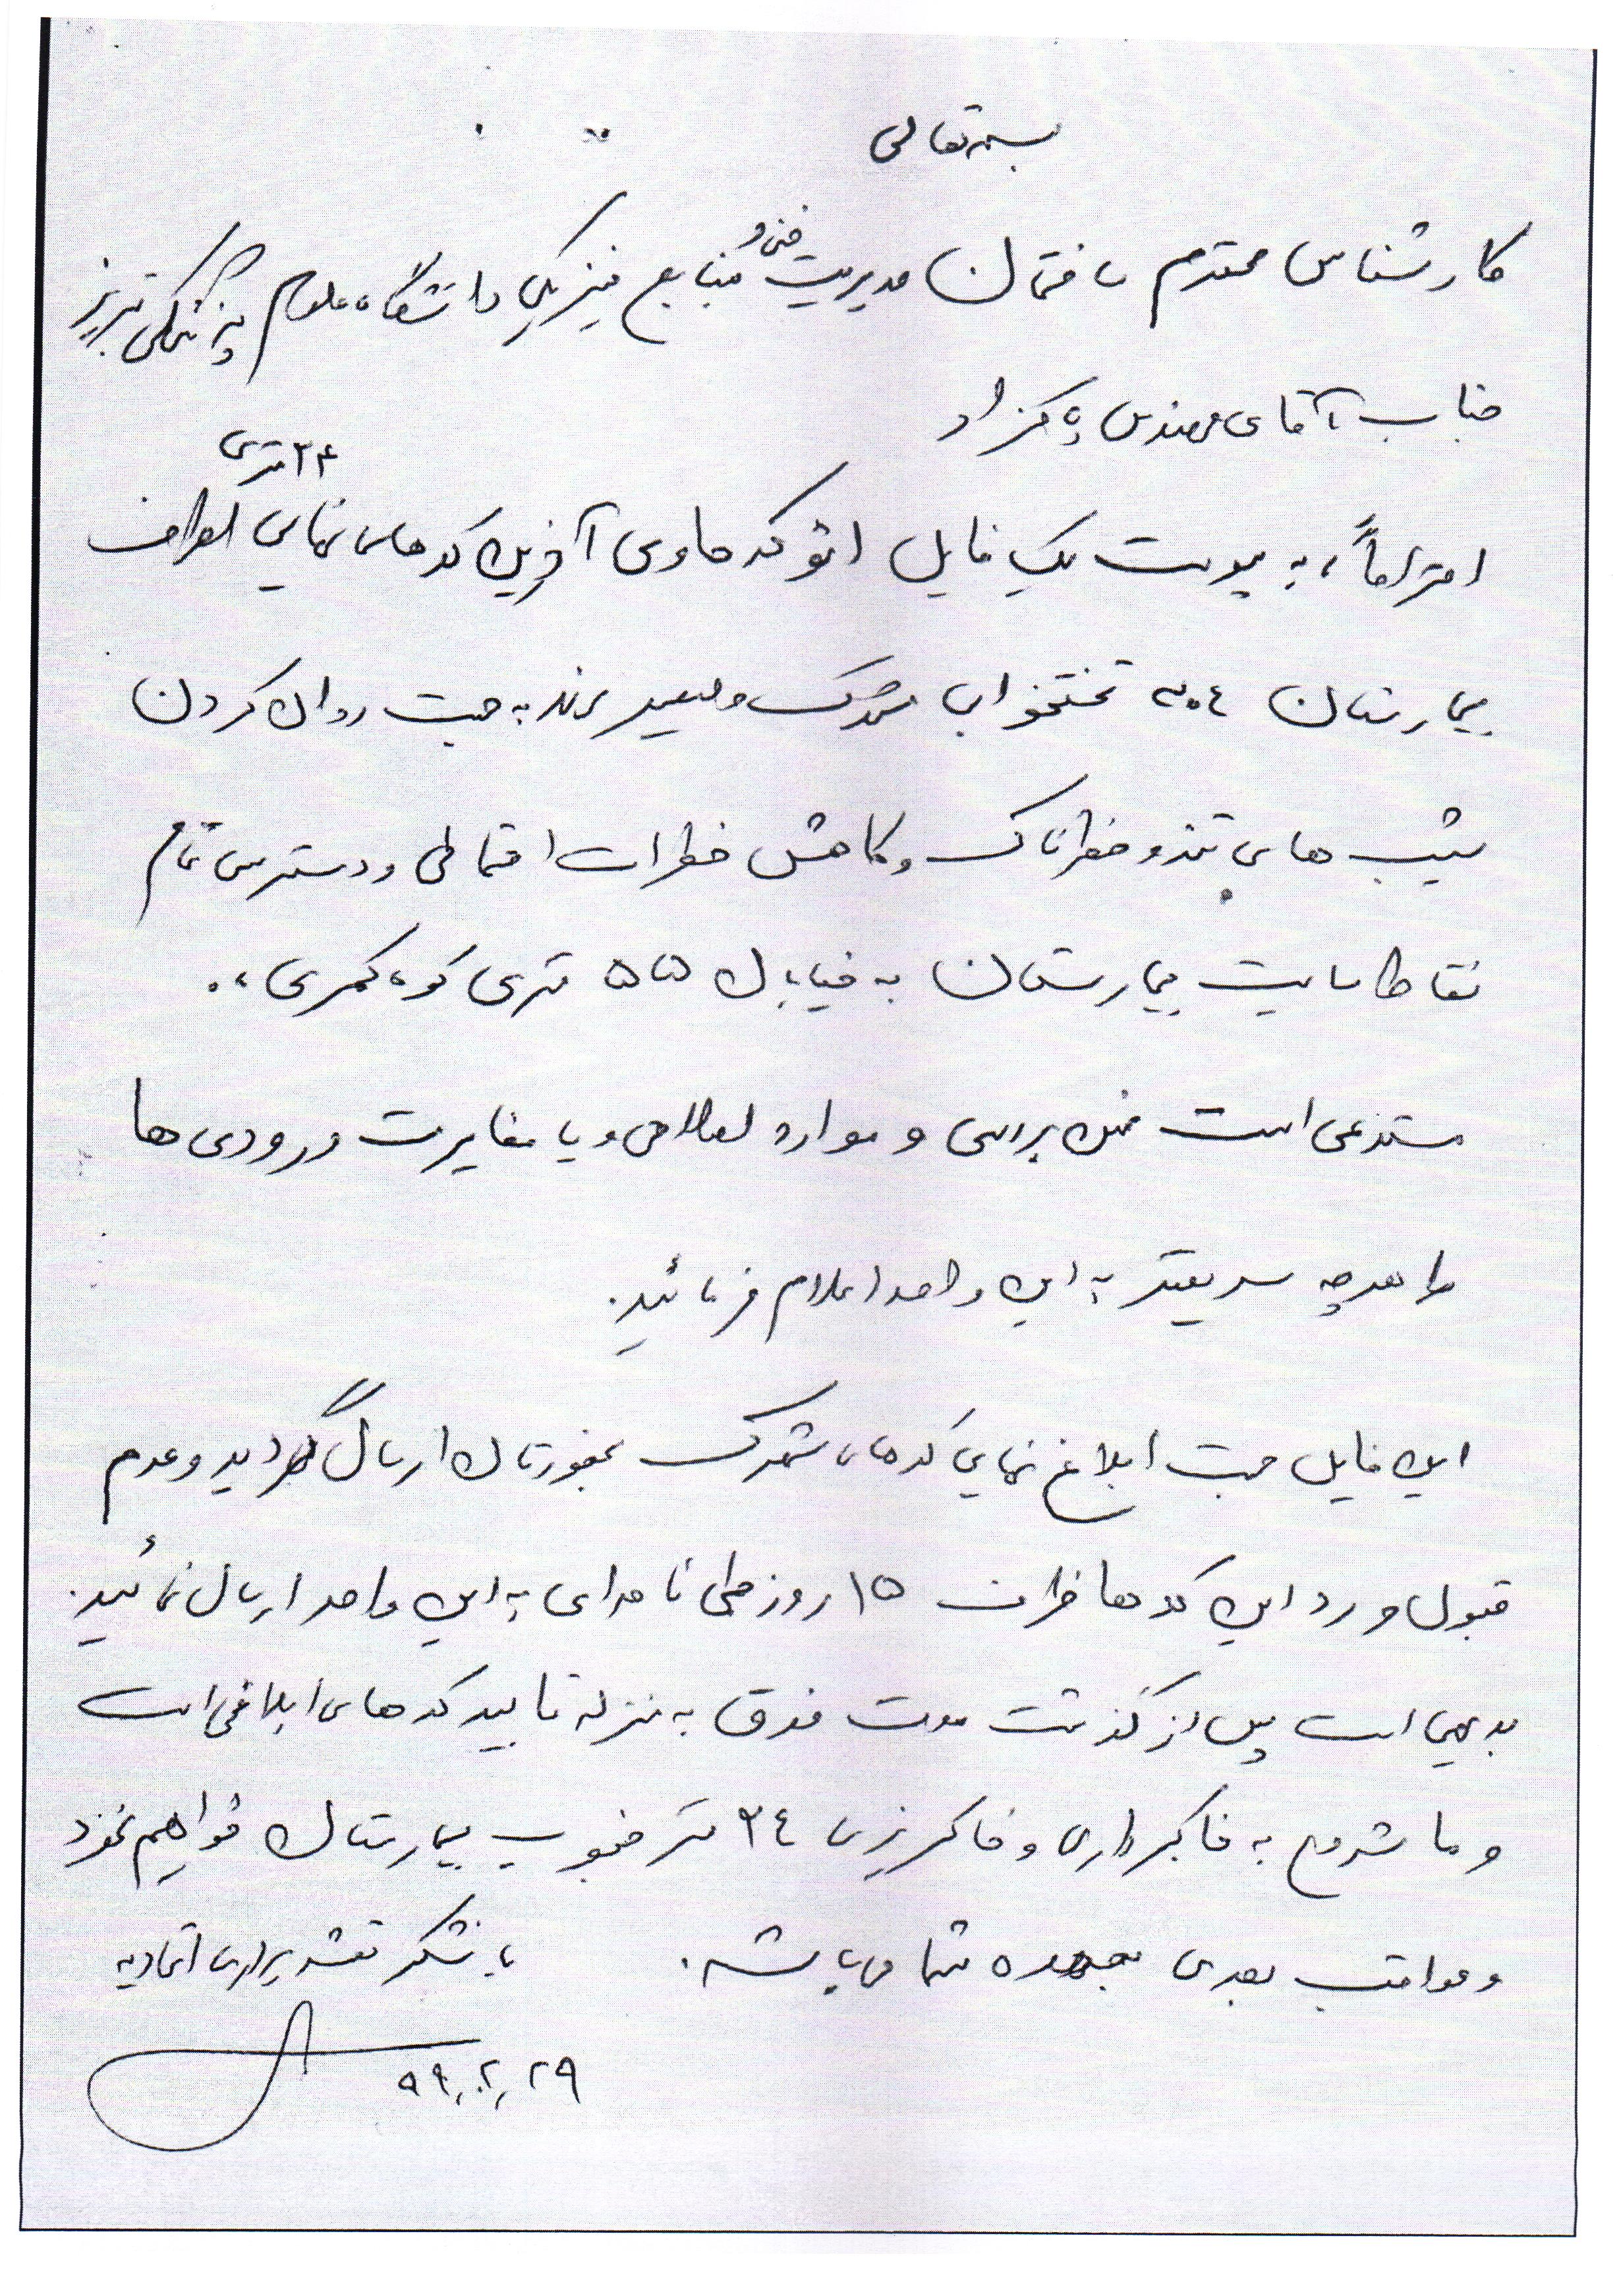 بسمه تعالی
کارشناس محترم ساختمان مدیریت فنی و منابع فیزیکی دانشگاه علوم پزشکی تبریز
جناب آقای مهندس پاکزاد
۲۴ متری
احتراماً، به پیوست یک فایل اتوکد حاوی آخرین کدهای نهایی اطراف
بیمارستان تختخوابی شهرک ولیعصر برند به جهت روان کردن
شیب های تند و خطرناک و کاهش خطرات احتمالی و دسترسی تمام
نقاط سایت بیمارستان به خیابان ۵۵ متری کوه کمری،.
مستدعی است ضمن بررسی و موارد اصلاحی و یا مغایرت ورودی ها
را هرچه سریعتر به این واحد اعلام فرمائید.
این فایل جهت ابلاغ نهایی کدهای شهرک بحضورتان ارسال گردید و عدم
قبول و رد این کدها ظرف ۱۵ روز طی نامه ای به این واحد ارسال نمائید.
بدیهی است پس از گذشت مدت فوق به منزله تایید کدهای ابلاغی است
و ما شروع به خاکبرداری و خاکریزی ۲۴ متر جنوب بیمارستان خواهیم نمود
و عواقب بعدی بعهده شما می باشد. با تشکر نقشه برداری اتحادیه
۹۹/۰۲/۲۹